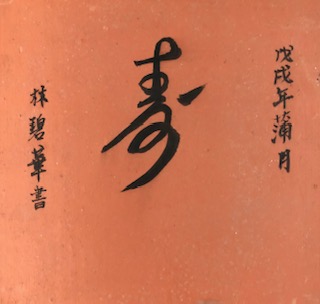 戊戌年蒲月
寿
林碧華書